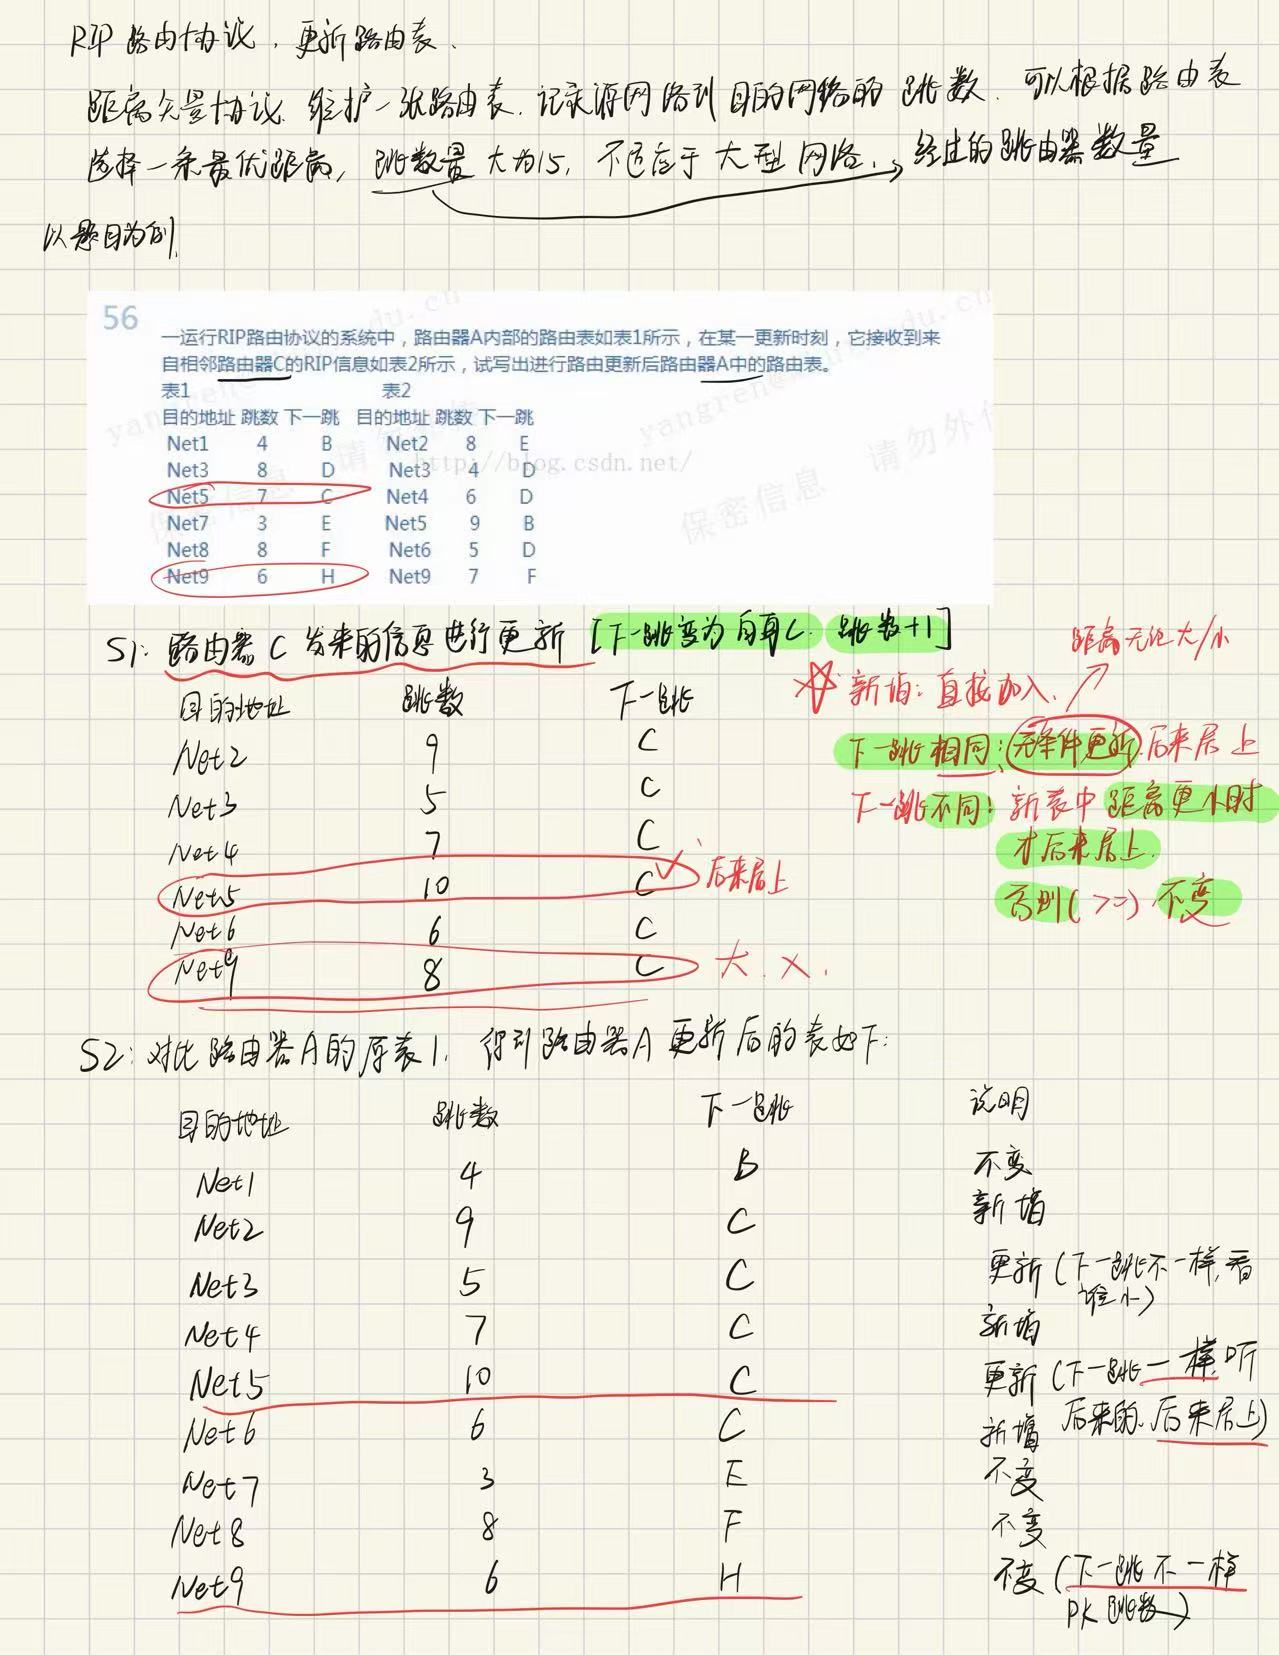 RIP 路由协议，更新路由表．
距离矢量协议．维护一张路由表．记录源网络到目的网络的跳数．可以根据路由表
选择一条最优距离，跳数最大为15，不适应于大型网络．→经过的路由器数量
以题目为例．
56
一运行RIP路由协议的系统中，路由器A内部的路由表如表1所示，在某一更新时刻，它接收到来
自相邻路由器C的RIP信息如表2所示，试写出进行路由更新后路由器A中的路由表。
表1 表2
目的地址 跳数 下一跳 目的地址 跳数 下一跳
Net1 4 B Net2 8 E
Net3 8 D Net3 4 D
Net5 7 C Net4 6 D
Net7 3 E Net5 9 B
Net8 8 F Net6 5 D
Net9 6 H Net9 7 F
http://blog.csdn.net/
保密信息 请勿外
S1：路由器C发来的信息进行更新 [下一跳变为自身C．跳数+1]
距离无论大/小
☆ 新增：直接加入．
下一跳相同：无条件更新．后来居上
下一跳不同：新表中距离更小时
才后来居上．
否则（>=）不变
目的地址 跳数 下一跳
Net2 9 C
Net3 5 C
Net4 7 C
Net5 10 C ✓ 后来居上
Net6 6 C
Net9 8 C 大．×．
S2：对比路由器A的原表1．得到路由器A更新后的表如下：
目的地址 跳数 下一跳 说明
Net1 4 B 不变
Net2 9 C 新增
Net3 5 C 更新（下一跳不一样，看
谁小）
Net4 7 C 新增
Net5 10 C 更新（下一跳一样，听
后来的．后来居上）
Net6 6 C 新增
Net7 3 E 不变
Net8 8 F 不变
Net9 6 H 不变（下一跳不一样
PK 跳数）